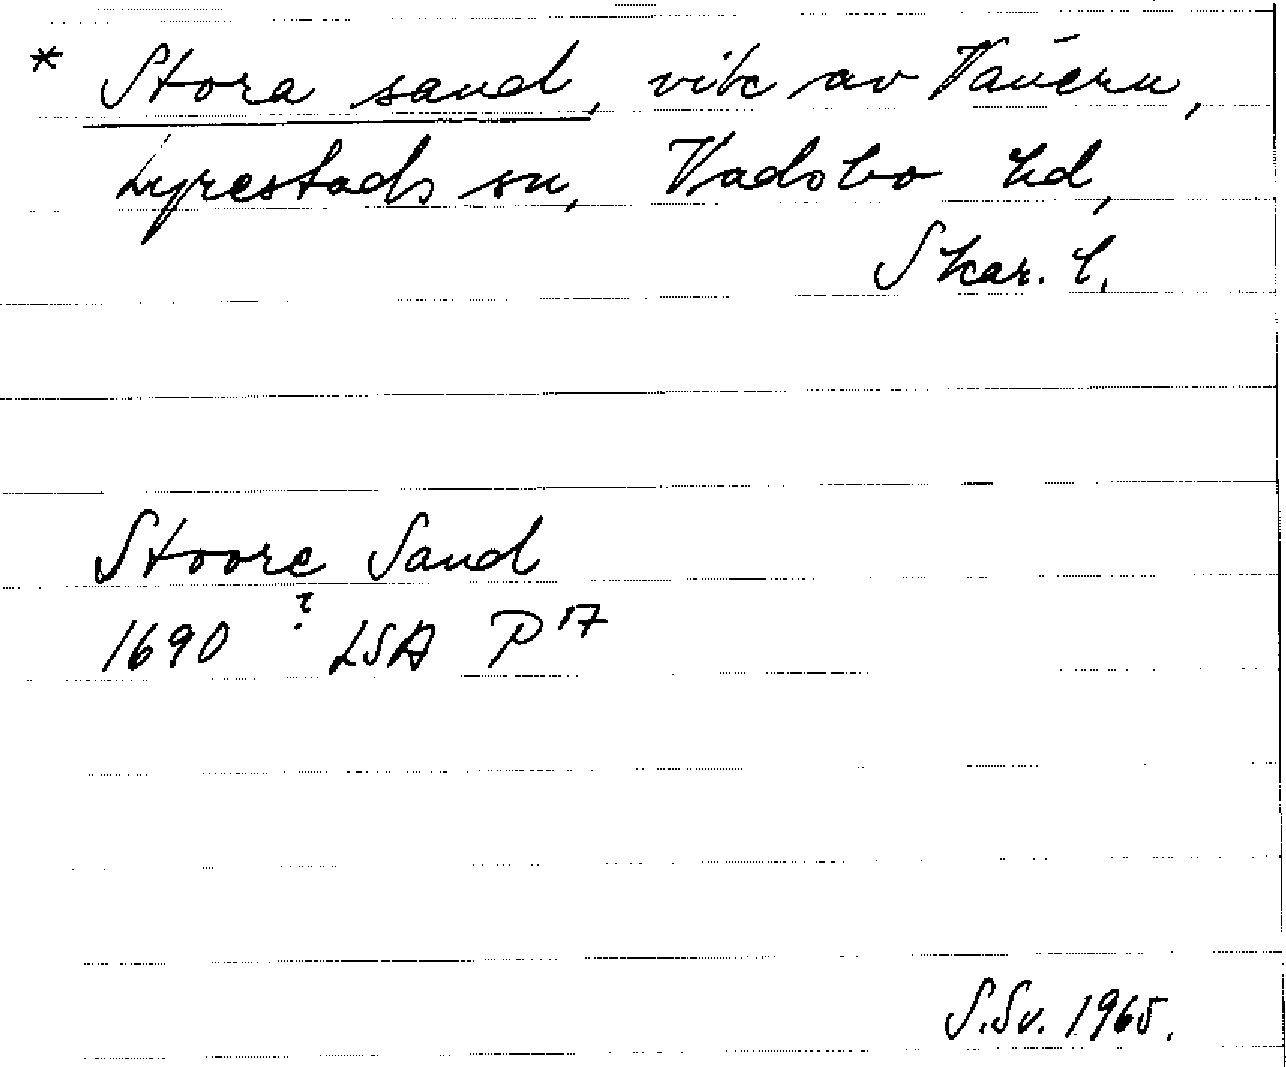 * Stora sand, vik av Vänern,
Lyrestads sn, Vadsbo hd,
Skar. l.
Stoore Sand
1690 ? LSA P 17
S.Sv. 1965.